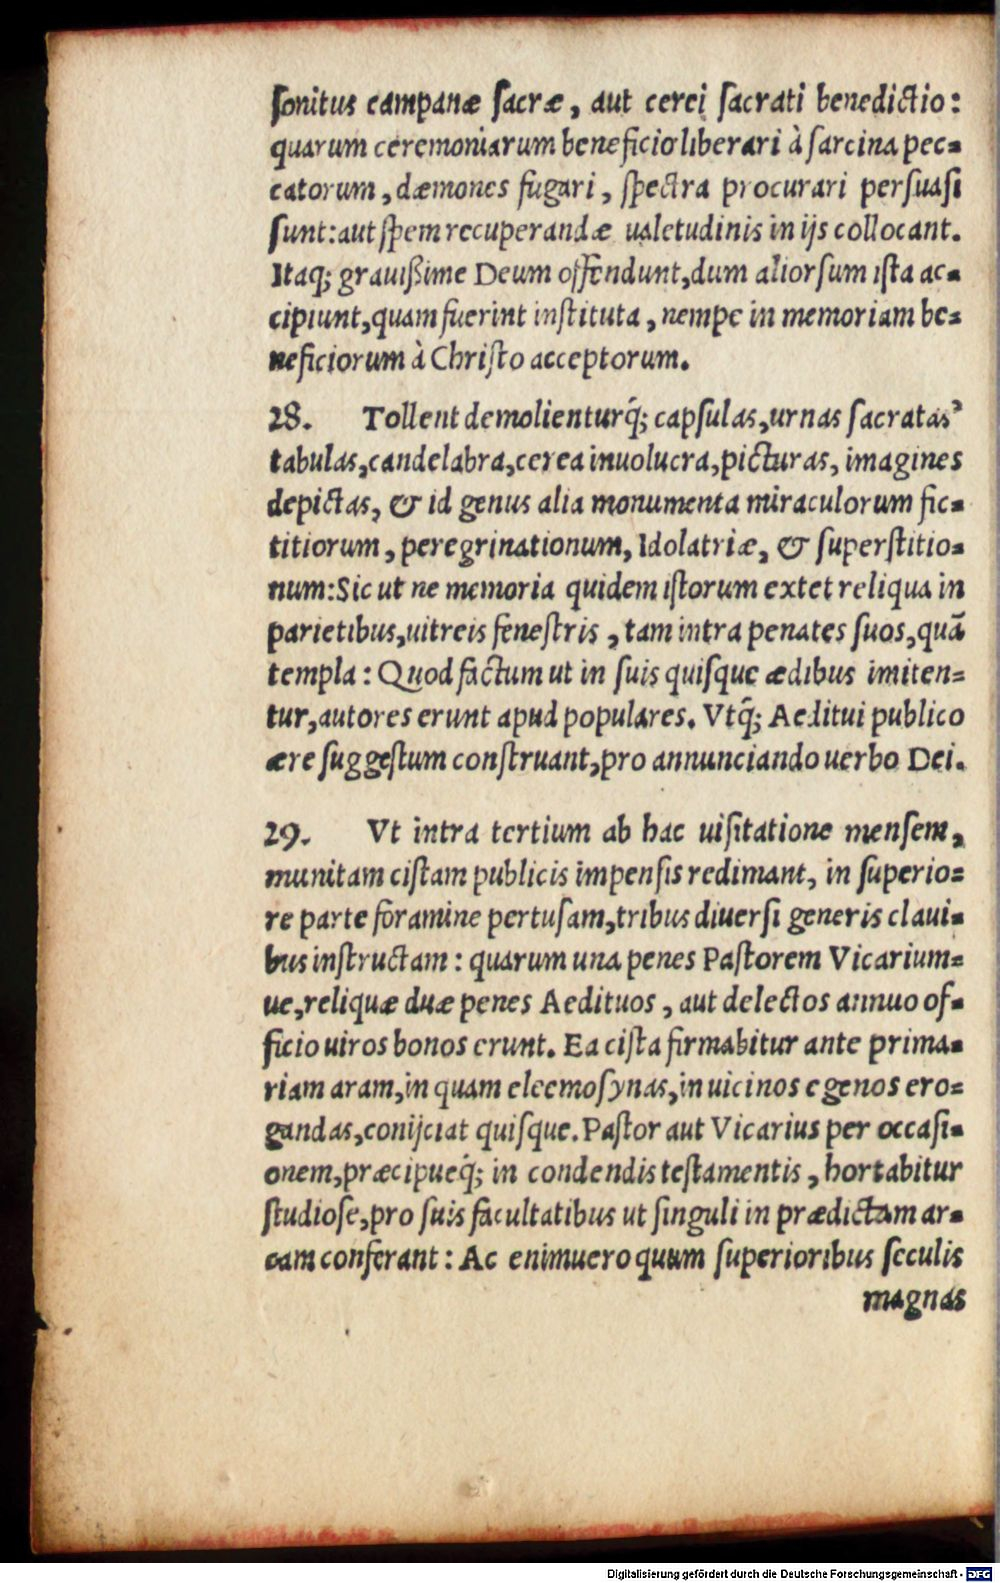 ſonitus campanæ ſacræ, aut cerei ſacrati benedictio:
quarum ceremoniarum beneficio liberari à ſarcina pec-
catorum, dæmones fugari, ſpectra procurari perſuaſi
ſunt: aut ſpem recuperandæ ualetudinis in ijs collocant.
Itaq; grauißime Deum offendunt, dum aliorſum iſta ac-
cipiunt, quam fuerint inſtituta, nempe in memoriam be-
neficiorum à Chriſto acceptorum.
28. Tollent demolienturq́; capſulas, urnas ſacratas,
tabulas, candelabra, cerea inuolucra, picturas, imagines
depictas, & id genus alia monumenta miraculorum fic-
titiorum, peregrinationum, Idolatriæ, & ſuperſtitio-
num: Sic ut ne memoria quidem iſtorum extet reliqua in
parietibus, uitreis feneſtris, tam intra penates ſuos, quã
templa: Quod factum ut in ſuis quiſque ædibus imiten-
tur, autores erunt apud populares. Vtq́; Aeditui publico
ære ſuggeſtum conſtruant, pro annunciando uerbo Dei.
29. Vt intra tertium ab hac uiſitatione menſem,
munitam ciſtam publicis impenſis redimant, in ſuperio-
re parte foramine pertuſam, tribus diuerſi generis claui-
bus inſtructam: quarum una penes Paſtorem Vicarium-
ue, reliquæ duæ penes Aedituos, aut delectos annuo of-
ficio uiros bonos erunt. Ea ciſta firmabitur ante prima-
riam aram, in quam eleemoſynas, in uicinos egenos ero-
gandas, conijciat quiſque. Paſtor aut Vicarius per occaſi-
onem, præcipueq́; in condendis teſtamentis, hortabitur
ſtudioſe, pro ſuis facultatibus ut ſinguli in prædictam ar-
cam conferant: Ac enimuero quum ſuperioribus ſeculis
magnas
Digitalisierung gefördert durch die Deutsche Forschungsgemeinschaft - DFG